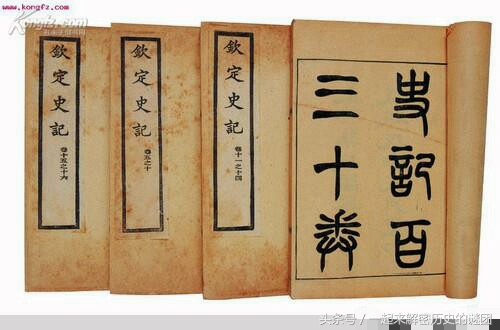 www.kongfz.com
欽定史記
卷十五之十六
欽定史記
卷五之十
欽定史記
卷十一之十四
史記百
三十卷
头条号 / 一起来解密历史的谜团